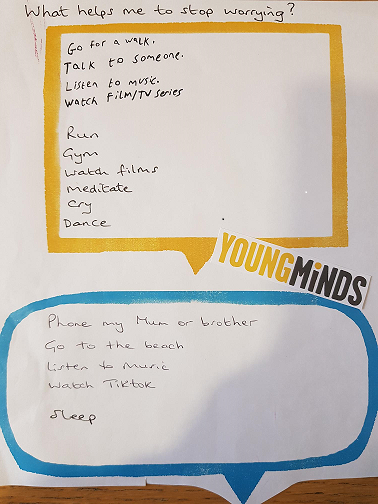 What helps me to stop worrying?
Go for a walk.
Talk to someone.
Listen to music.
Watch film/TV series
Run
Gym
Watch films
Meditate
Cry
Dance
YOUNGMiNDS
Phone my Mum or brother
Go to the beach
Listen to music
Watch Tiktok
Sleep